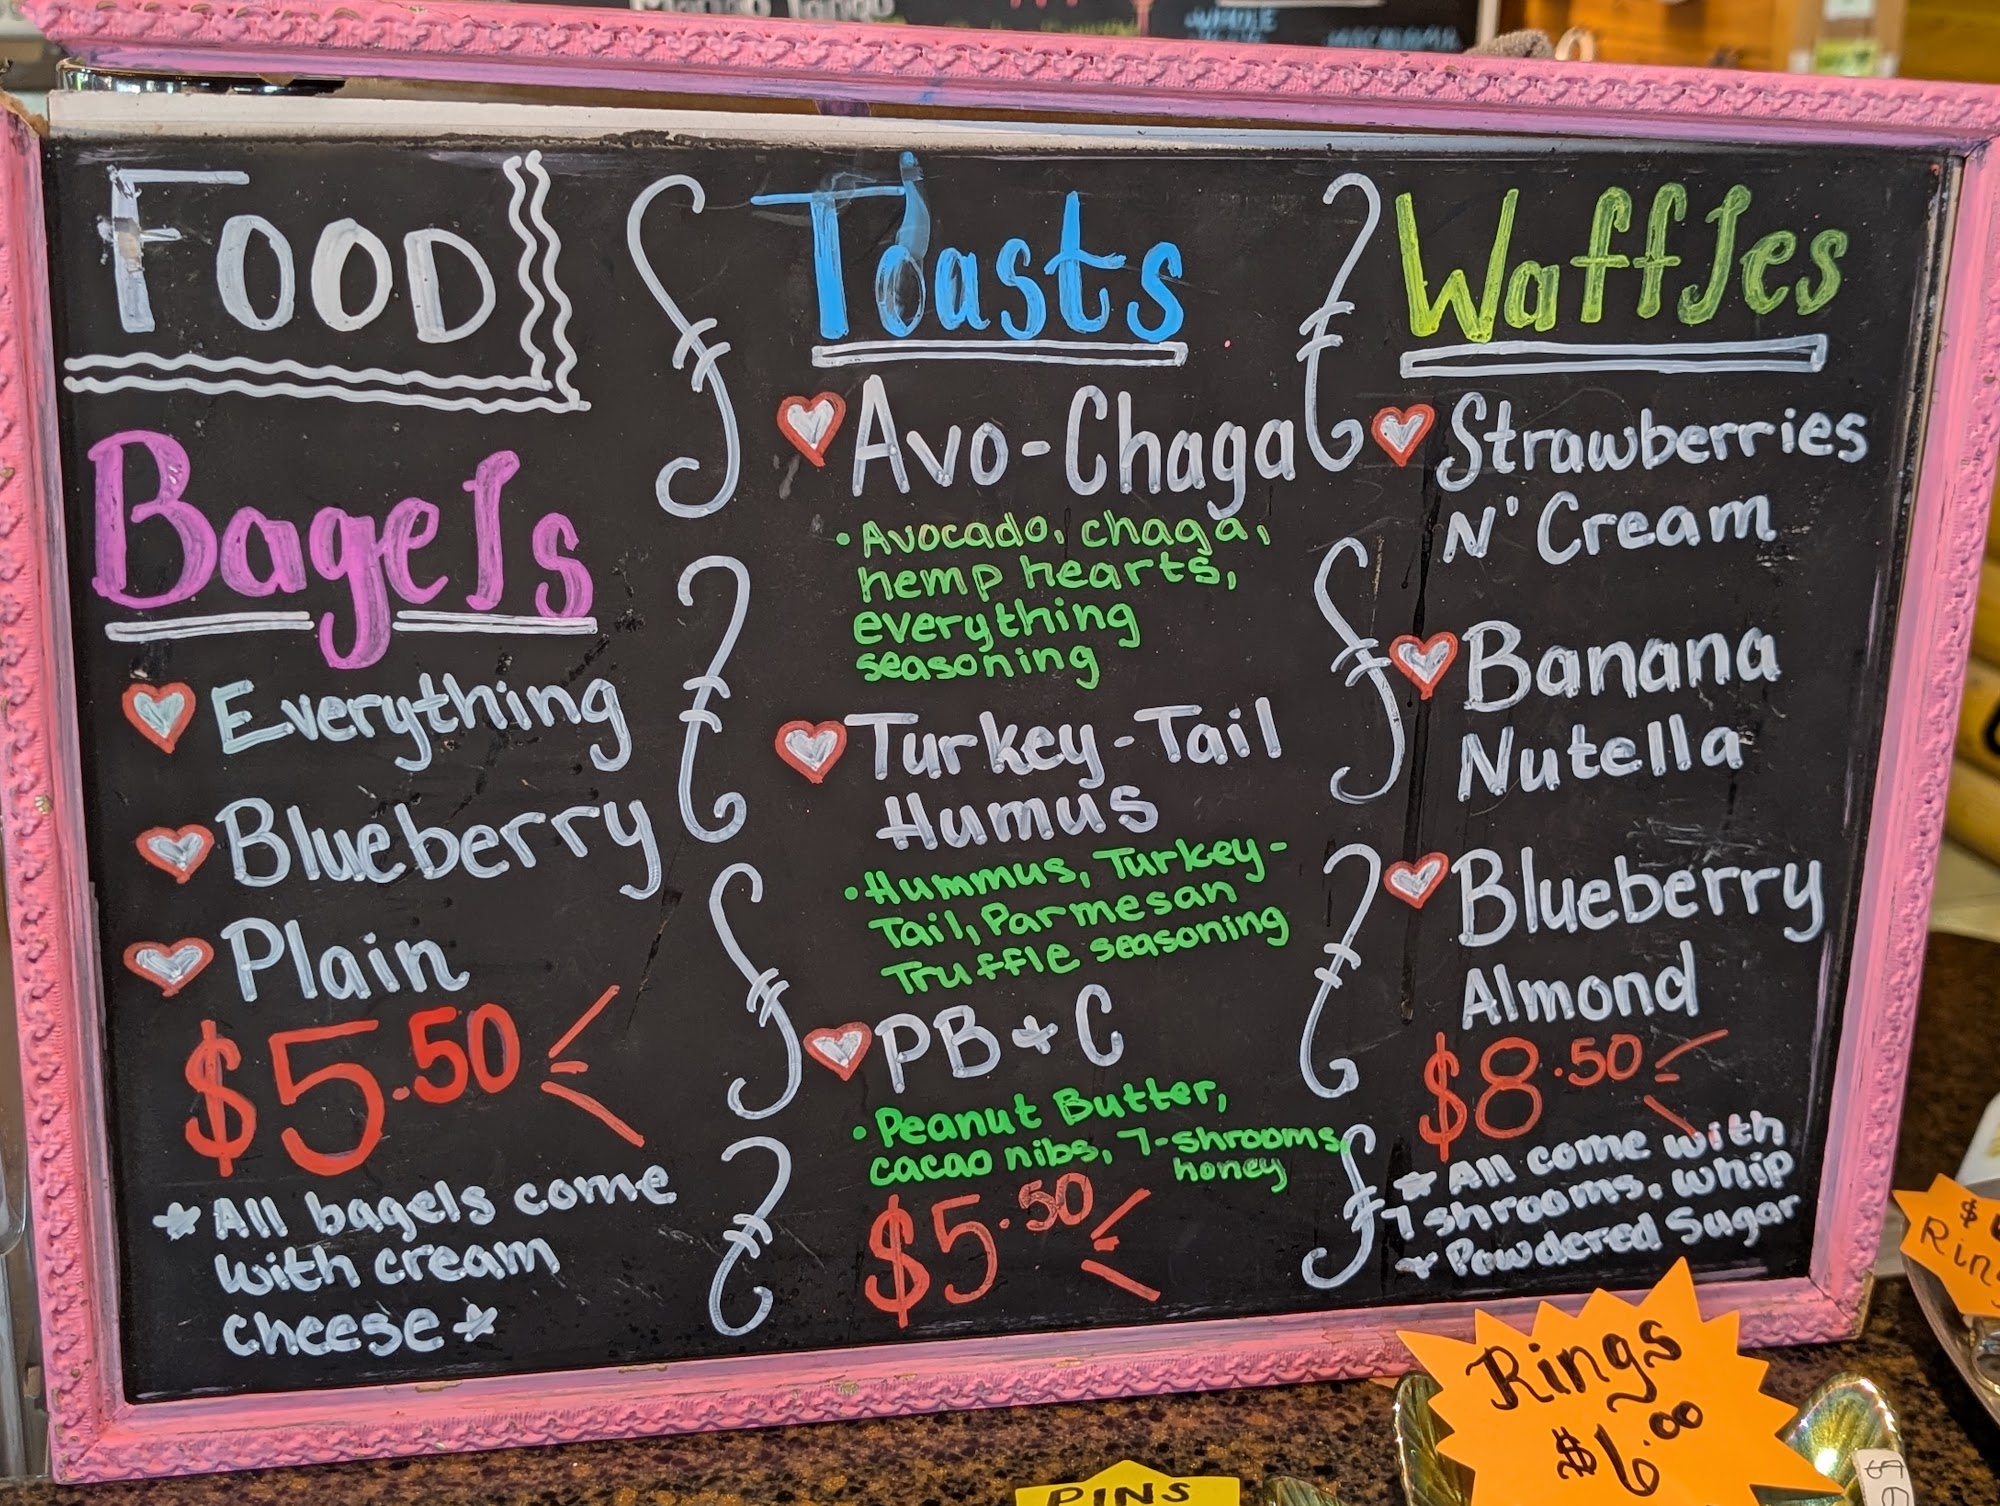 Mango Tango
FOOD
Bagels
Everything
Blueberry
Plain
$5.50
*All bagels come
with cream
cheese*
Toasts
Avo-Chaga
•Avocado, chaga,
hemp hearts,
everything
seasoning
Turkey-Tail
Humus
•Hummus, Turkey-
Tail, Parmesan
Truffle seasoning
PB+C
•Peanut Butter,
cacao nibs, 7-shrooms,
honey
$5.50
Waffles
Strawberries
N' Cream
Banana
Nutella
Blueberry
Almond
$8.50
*All come with
7 shrooms, whip
+ Powdered Sugar
Rings
$6.00
PINS